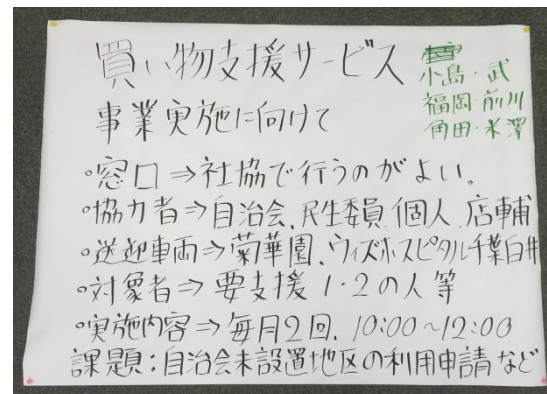 買い物支援サービス
事業実施に向けて
小島・武
福岡・前川
角田・米澤
・窓口⇒社協で行うのがよい。
・協力者⇒自治会、民生委員、個人、店舗
・送迎車両⇒菊華園、ウィズホスピタル千葉白井
・対象者⇒要支援1・2の人等
・実施内容⇒毎月2回、10:00~12:00
課題:自治会未設置地区の利用申請など